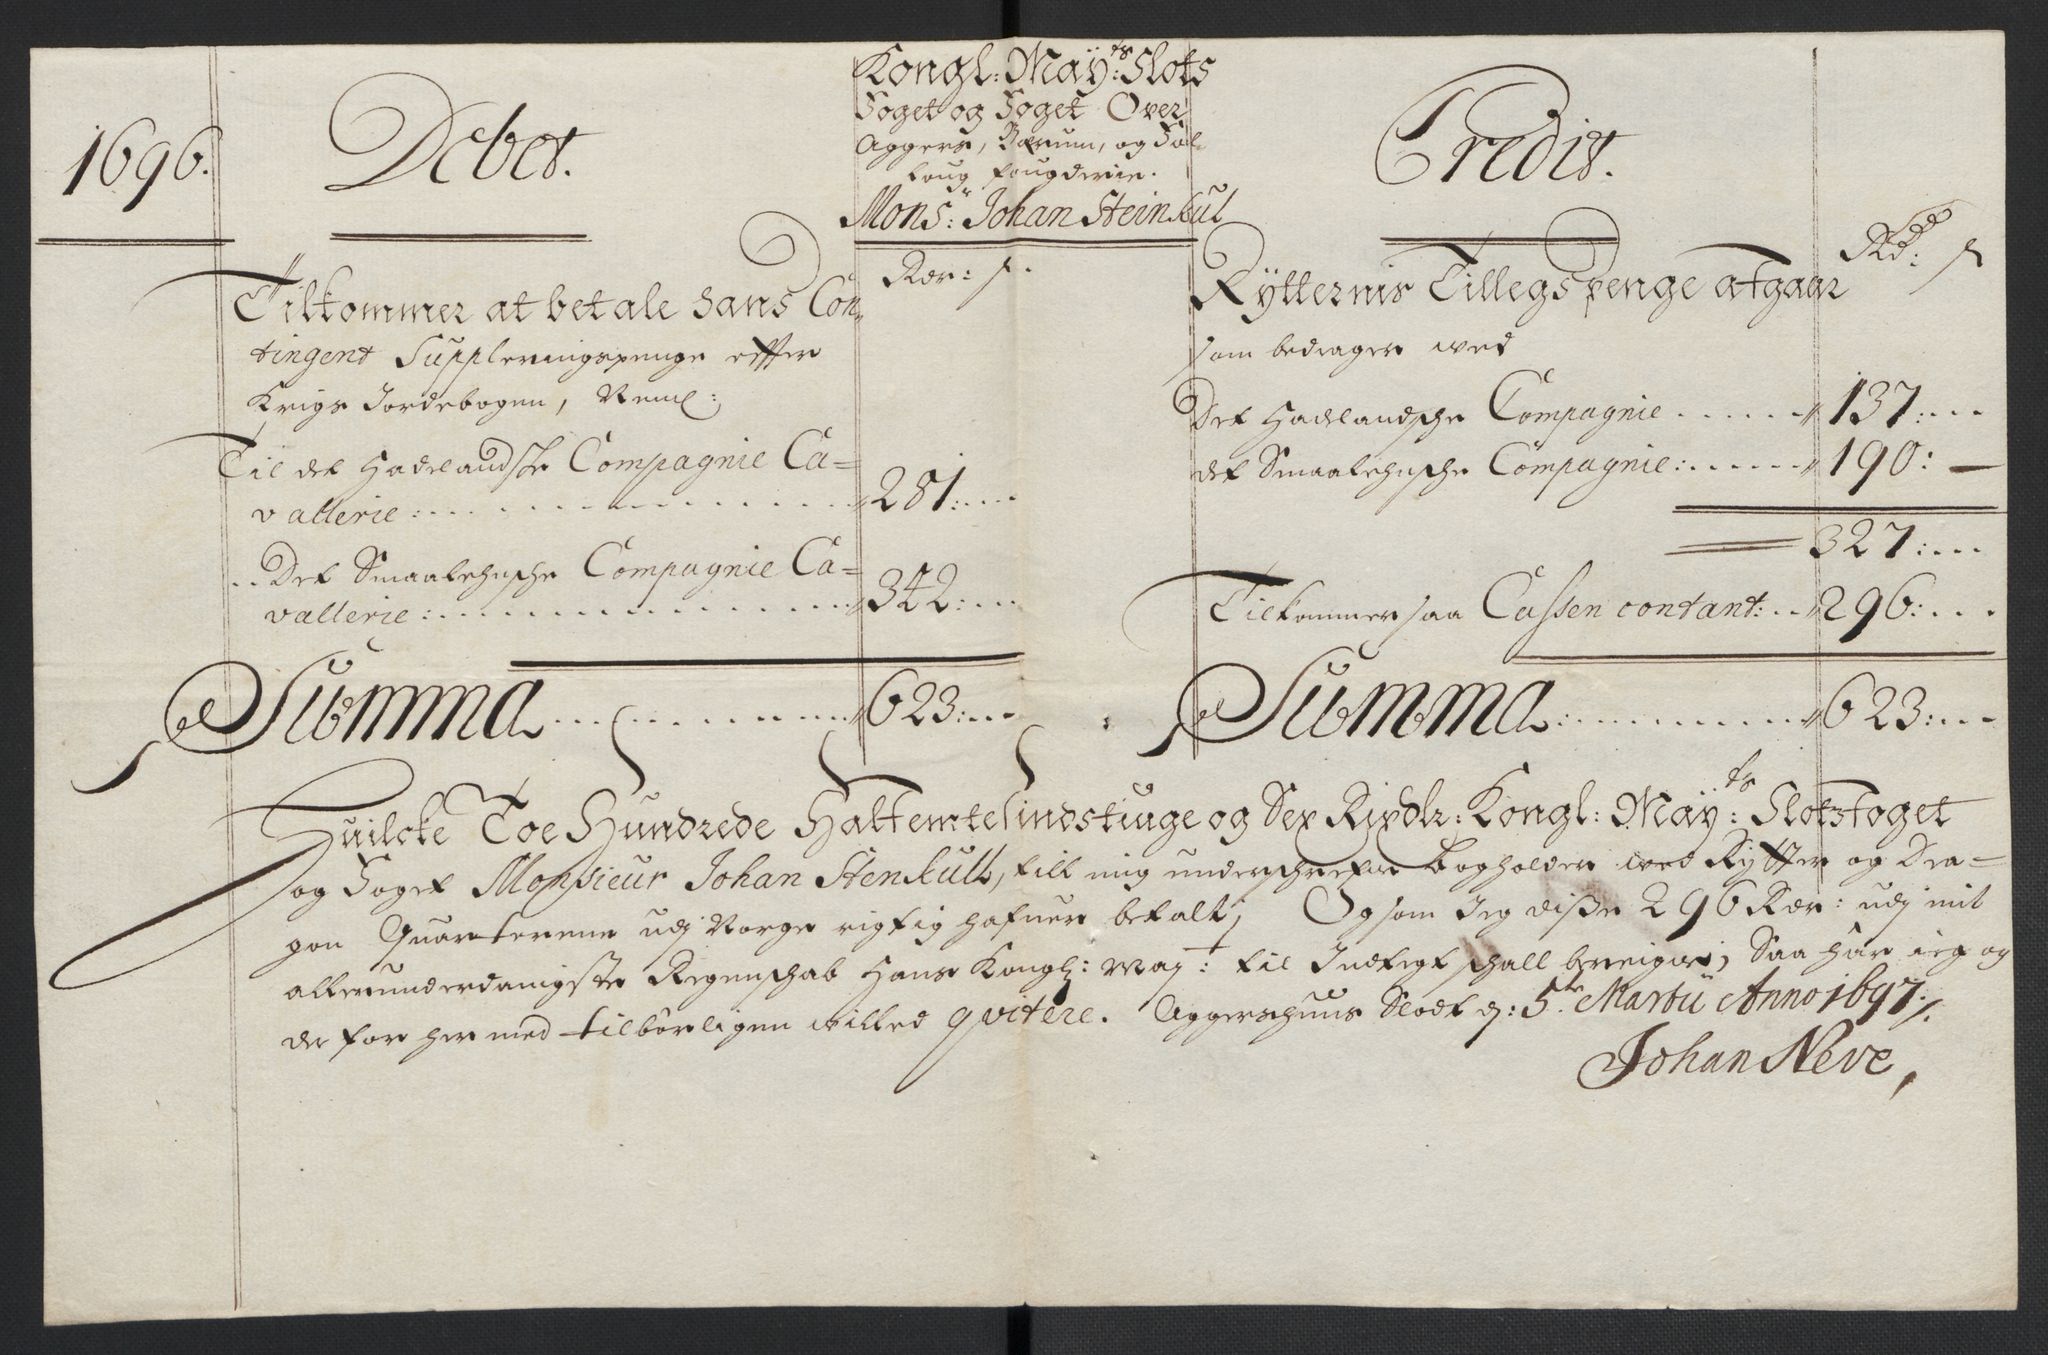 1696.
Debet.
Kongl: May:ts Slots
Foget og Foget Over
Aggers, Bærum, og Fol-
loug fougderie.
Mons:r Johan Steinkul
Credit.
Rdr: s.
Tilkommer at betale hans Con-
tingent Suppleringspenge efter
Krigs Jordebogen, Neml:
Til det Hadelandske Compagnie Ca=
vallerie: 281:
Det Smaalehnsche Compagnie Ca=
vallerie: 342:
Summa 623:
Rd: s
Rytternis Tillegs penge afgaar
som bedrager wed
Det Hadelandsche Compagnie 137:
det Smaalehnsche Compagnie: 190: —
327:
Tilkommer saa Cassen contant: 296:
Summa 623:
Huilcke Toe Hundrede Halfemtesindstiuge og Sex Rixdlr: Kongl: May:ts Slotsfoget
og Foget Monsieur Johan Stenkull, till mig underschrefne bogholder wed Rytter og Dra=
gon Quarterene udj Norge rigtig hafuer betalt; Og som Jeg diße 296 Rdr: udj mit
allerunderdanigste Regenschab Hans Kongl: May: til Indtegt schall bereigne, Saa har ieg og
der for her med tilbørligen willed qvitere. Aggershuus Slodt d: 5te Martii Anno 1697.
Johan Neve,